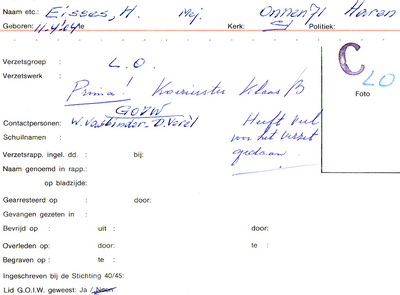 Naam etc.: Eisses, H. Mej. Onnen 71 Haren
Geboren: 11.4.'04 te Kerk: Politiek:
C
LO
Foto
Verzetsgroep : L.O.
Verzetswerk : Prima! Koerierster Klaas B
GOIW
Contactpersonen: W. Vastbinder - D. Verèl
Schuilnamen :
Heeft veel
voor het verzet
gedaan.
Verzetsrapp. ingel. dd. : bij:
Naam genoemd in rapp.:
op bladzijde:
Gearresteerd op : door:
Gevangen gezeten in :
Bevrijd op : uit : door:
Overleden op : door: te :
Begraven op : te :
Ingeschreven bij de Stichting 40/45:
Lid G.O.I.W. geweest: Ja / Neen